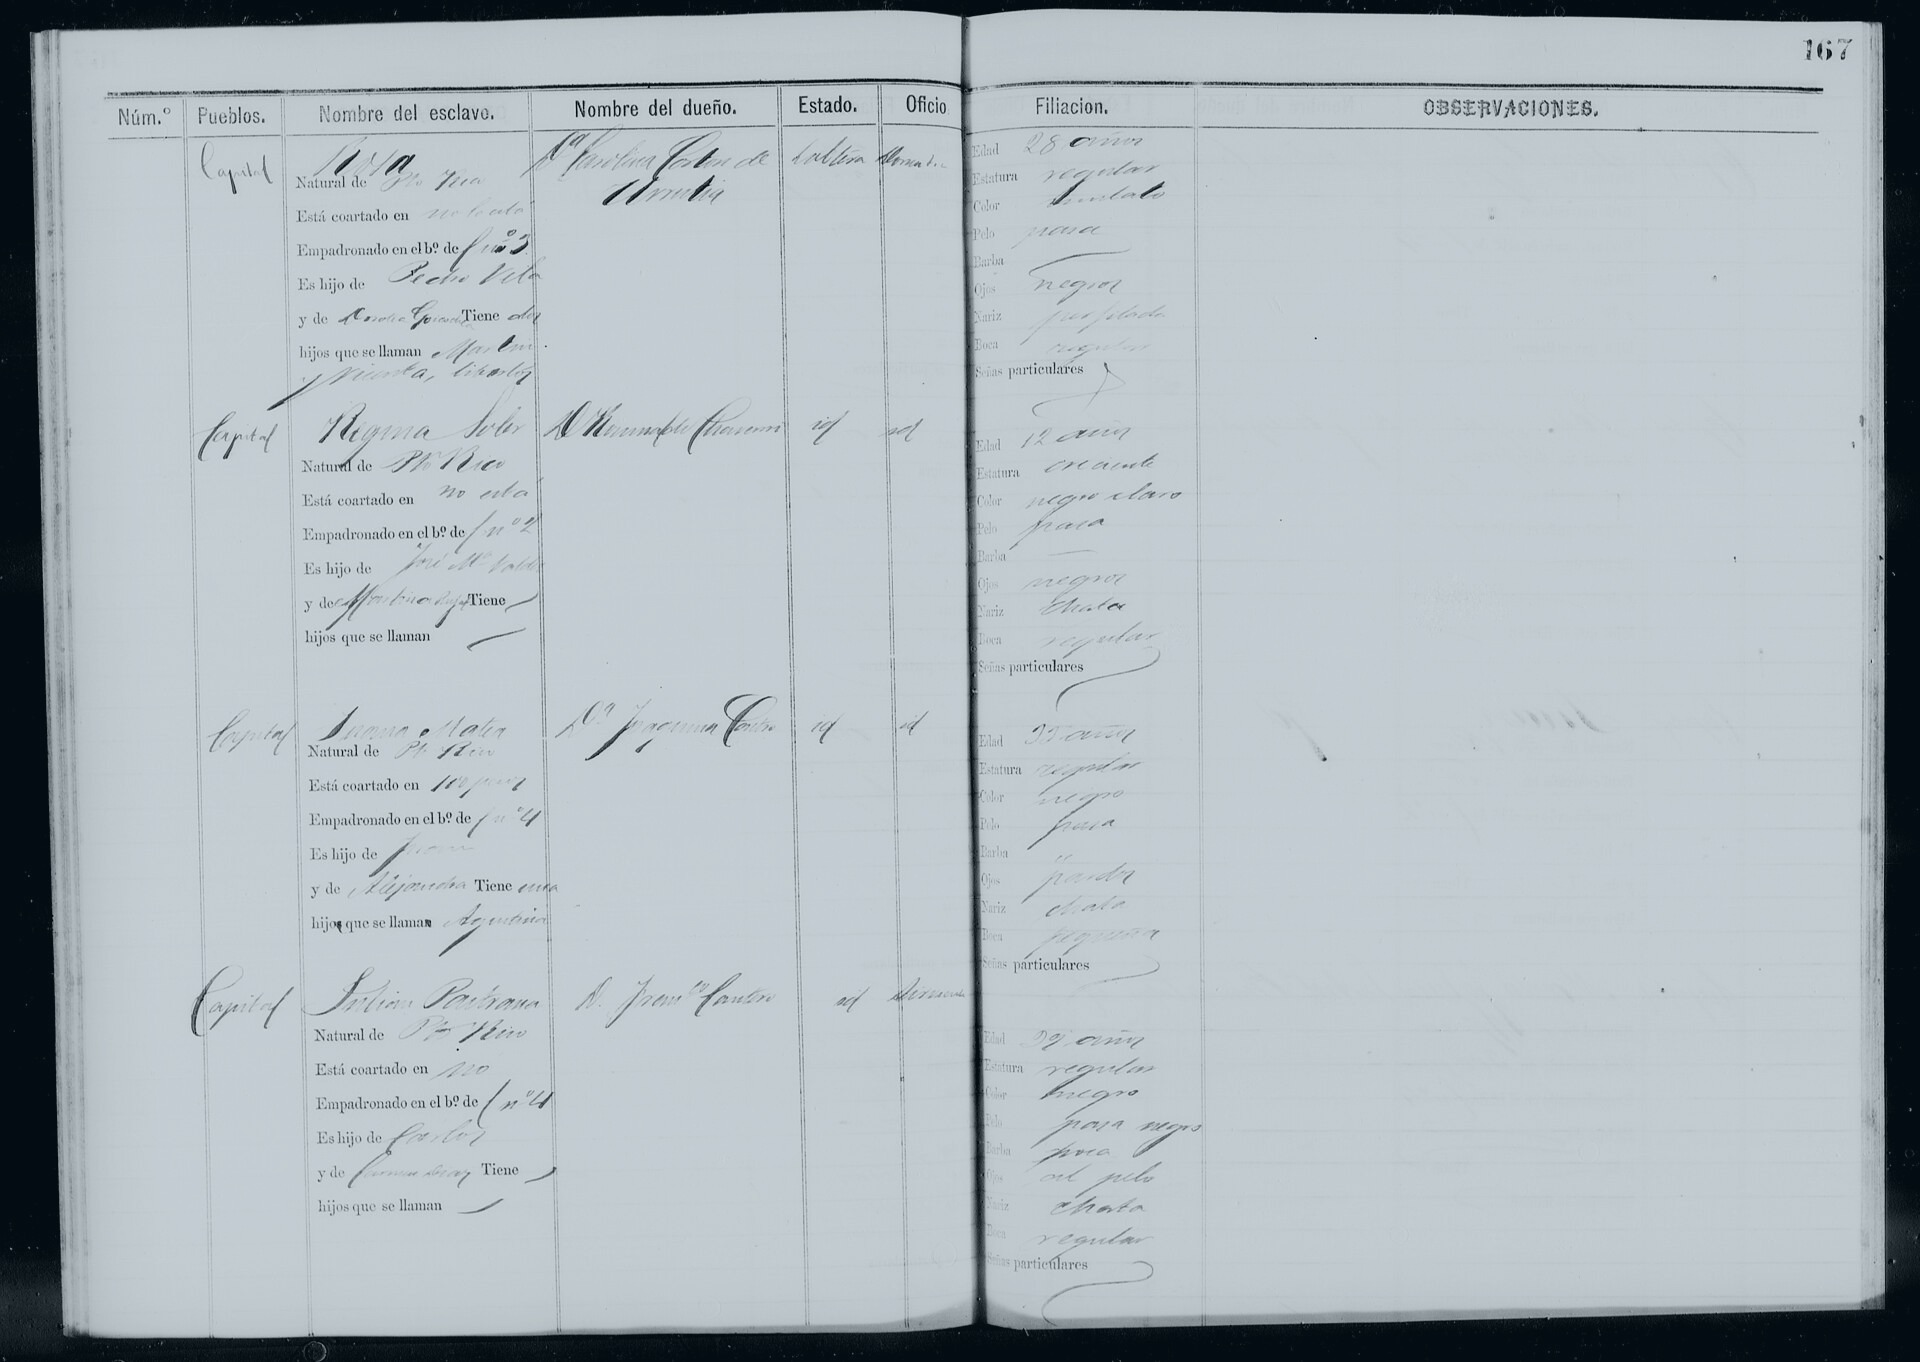 167
Núm.º Pueblos. Nombre del esclavo. Nombre del dueño. Estado. Oficio Filiacion. OBSERVACIONES.
Capital Rosa Dª Carolina de Soltera
Natural de Pto Rico
Está coartado en no lo está
Empadronado en el bº. de nº 3
Es hijo de Pedro Vela
y de Tiene dos
hijos que se llaman Martin
y Vicenta, libertos
Edad 28 años
Estatura regular
Color mulato
Pelo pasa
Barba
Ojos negros
Nariz perfilada
Boca regular
Señas particulares
Capital Regina Soler id id
Natural de Pto Rico
Está coartado en no está
Empadronado en el bº. de nº 2
Es hijo de José Mª
y de Martina Tiene
hijos que se llaman
Edad 12 años
Estatura creciente
Color negro claro
Pelo pasa
Barba
Ojos negros
Nariz chata
Boca regular
Señas particulares
Capital Juana Matea Dª Joaquina id id
Natural de Pto Rico
Está coartado en 100 pesos
Empadronado en el bº. de nº 4
Es hijo de Juan
y de Alejandra Tiene una
hijos que se llaman Agustina
Edad años
Estatura regular
Color negro
Pelo pasa
Barba "
Ojos pardos
Nariz chata
Boca pequeña
Señas particulares
Capital Julian Pastrana D. Franco Cantero id
Natural de Pto Rico
Está coartado en no
Empadronado en el bº. de nº 4
Es hijo de Carlos
y de Carmen Tiene
hijos que se llaman
Edad años
Estatura regular
Color negro
Pelo pasa negro
Barba poca
Ojos del pelo
Nariz chata
Boca regular
Señas particulares